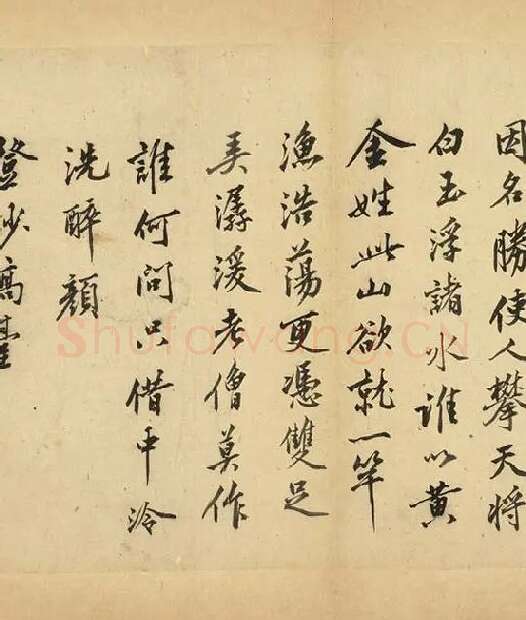 因名勝使人攀天將
白玉浮諸水誰以黃
金姓此山欲就一竿
漁浩蕩更憑雙足
弄潺湲老僧莫作
誰何問只借中泠
洗醉顏
登妙高臺
Shufawang.CN